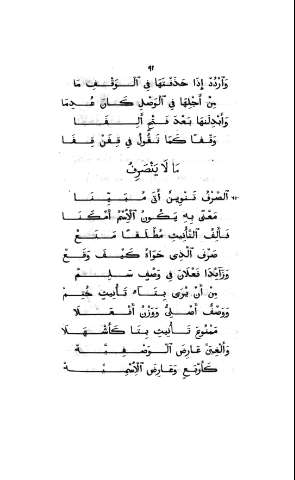 ٩٢
وَٱرْدُدْ إِذَا حَذَفْتَهَا فِي ٱلْوَقْفِ مَا
مِنْ أَجْلِهَا فِي ٱلْوَصْلِ كَانَ عُدِمَا
وَأَبْدِلَنْهَا بَعْدَ فَتْحٍ أَلِفَا
وَقْفًا كَمَا تَقُولُ فِي قِفَنْ قِفَا
مَا لَا يَنْصَرِفُ
ٱلصَّرْفُ تَنْوِينٌ أَتَى مُبَيِّنَا
مَعْنًى بِهِ يَكُونُ ٱلْٱِسْمُ أَمْكَنَا
فَأَلِفُ ٱلتَّأْنِيثِ مُطْلَقًا مَنَعْ
صَرْفَ ٱلَّذِي حَوَاهُ كَيْفَ وَقَعْ
وَزَائِدَا فَعْلَانَ فِي وَصْفٍ سَلِمْ
مِنْ أَنْ يُرَى بِتَاءِ تَأْنِيثٍ خُتِمْ
وَوَصْفٌ أَصْلِيٌّ وَوَزْنُ أَفْعَلَا
مَمْنُوعَ تَأْنِيثٍ بِتَا كَأَشْهَلَا
وَأَلْغِيَنَّ عَارِضَ ٱلْوَصْفِيَّهْ
كَأَرْبَعٍ وَعَارِضَ ٱلْٱِسْمِيَّهْ